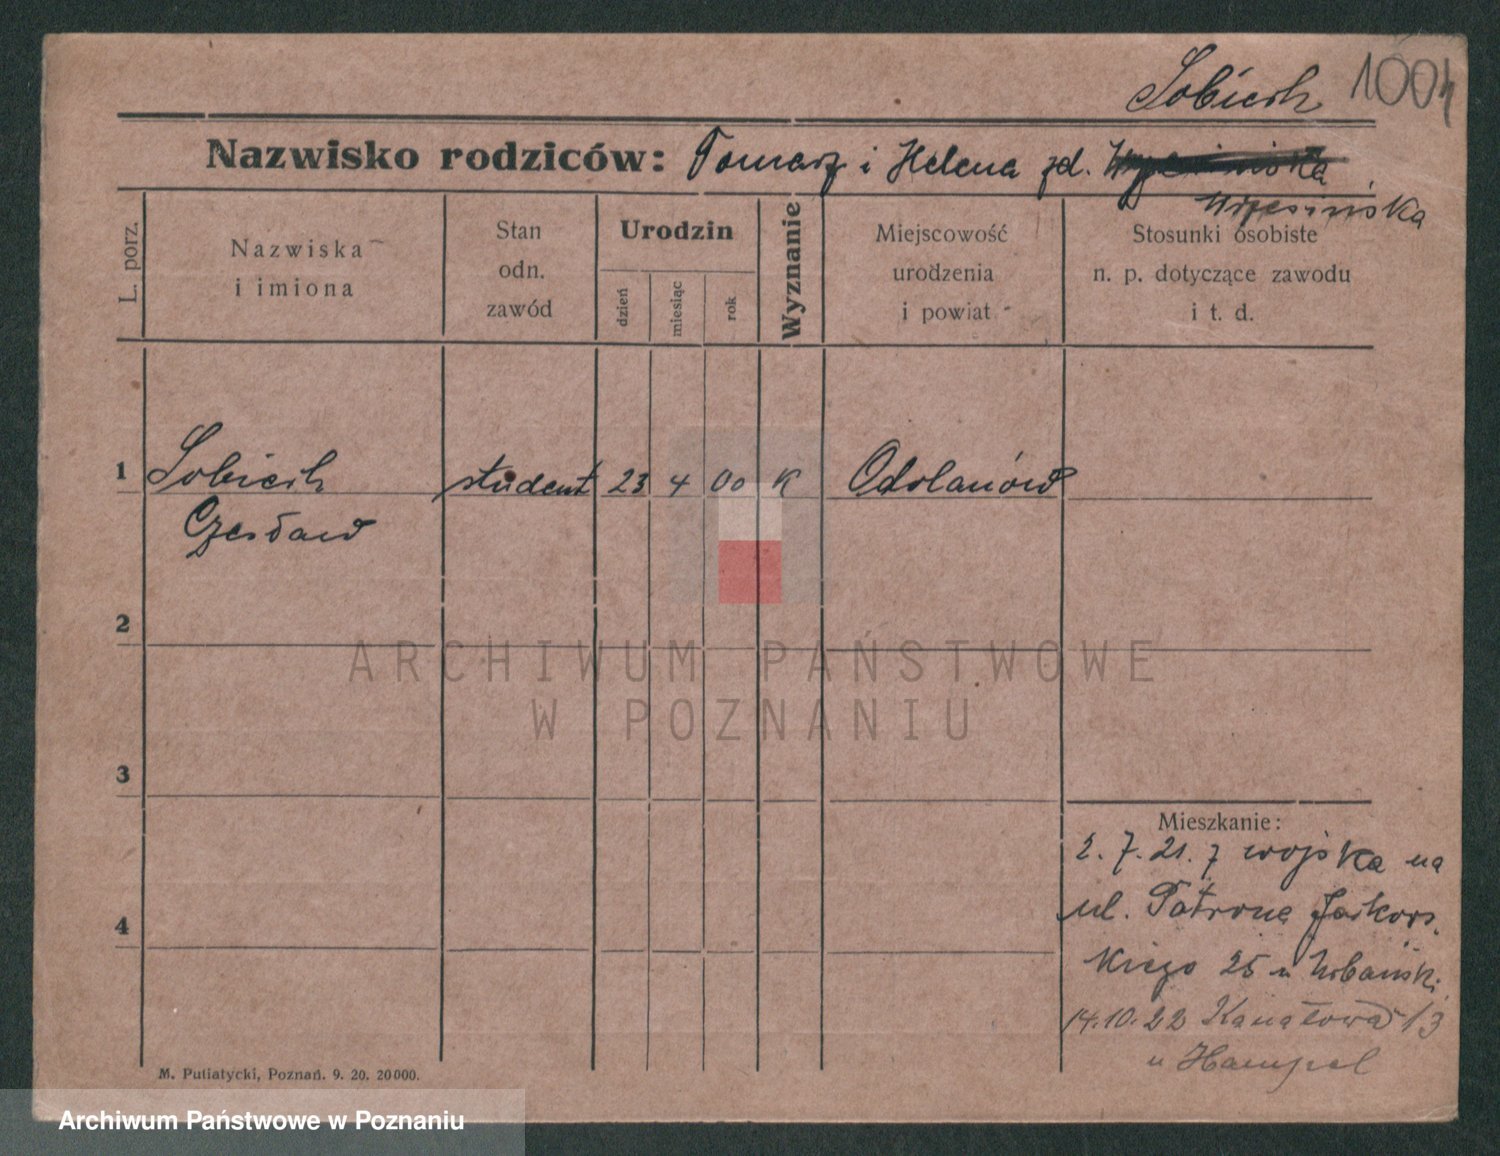 Sobiech 1004
Nazwisko rodziców: Tomasz i Helena zd.
Wrzesińska
L. porz.
Nazwiska
i imiona
Stan
odn.
zawód
Urodzin
dzień
miesiąc
rok
Wyznanie
Miejscowość
urodzenia
i powiat
Stosunki osobiste
n. p. dotyczące zawodu
i t. d.
1 Sobiech student 23 4 00 K Odolanów
Czesław
2
3
4
Mieszkanie:
2.7.21. z wojska na
ul. Patrona Jackows.
kiego 25 u Urbański
14.10.22 Kanałowa 13
u Hampel
M. Putiatycki, Poznań. 9. 20. 20000.
ARCHIWUM PAŃSTWOWE
W POZNANIU
Archiwum Państwowe w Poznaniu